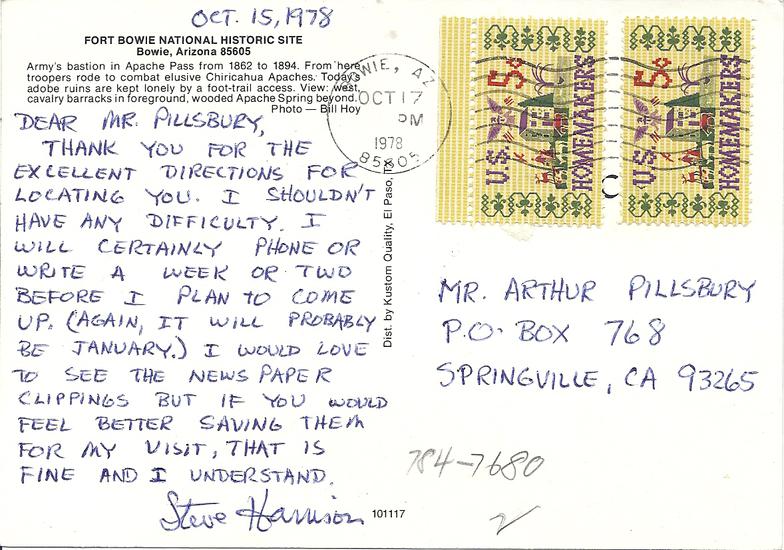 OCT. 15, 1978
FORT BOWIE NATIONAL HISTORIC SITE
Bowie, Arizona 85605
Army's bastion in Apache Pass from 1862 to 1894. From here
troopers rode to combat elusive Chiricahua Apaches. Today's
adobe ruins are kept lonely by a foot-trail access. View: west,
cavalry barracks in foreground, wooded Apache Spring beyond.
Photo — Bill Hoy
DEAR MR. PILLSBURY,
THANK YOU FOR THE
EXCELLENT DIRECTIONS FOR
LOCATING YOU. I SHOULDN'T
HAVE ANY DIFFICULTY. I
WILL CERTAINLY PHONE OR
WRITE A WEEK OR TWO
BEFORE I PLAN TO COME
UP. (AGAIN, IT WILL PROBABLY
BE JANUARY.) I WOULD LOVE
TO SEE THE NEWSPAPER
CLIPPINGS BUT IF YOU WOULD
FEEL BETTER SAVING THEM
FOR MY VISIT, THAT IS
FINE AND I UNDERSTAND.
Steve Harrison
101117
Dist. by Kustom Quality, El Paso, TX
BOWIE, AZ
OCT 17
PM
1978
85605
U.S. 5c
HOMEMAKERS
U.S. 5c
HOMEMAKERS
MR. ARTHUR PILLSBURY
P.O. BOX 768
SPRINGVILLE, CA 93265
784-7680